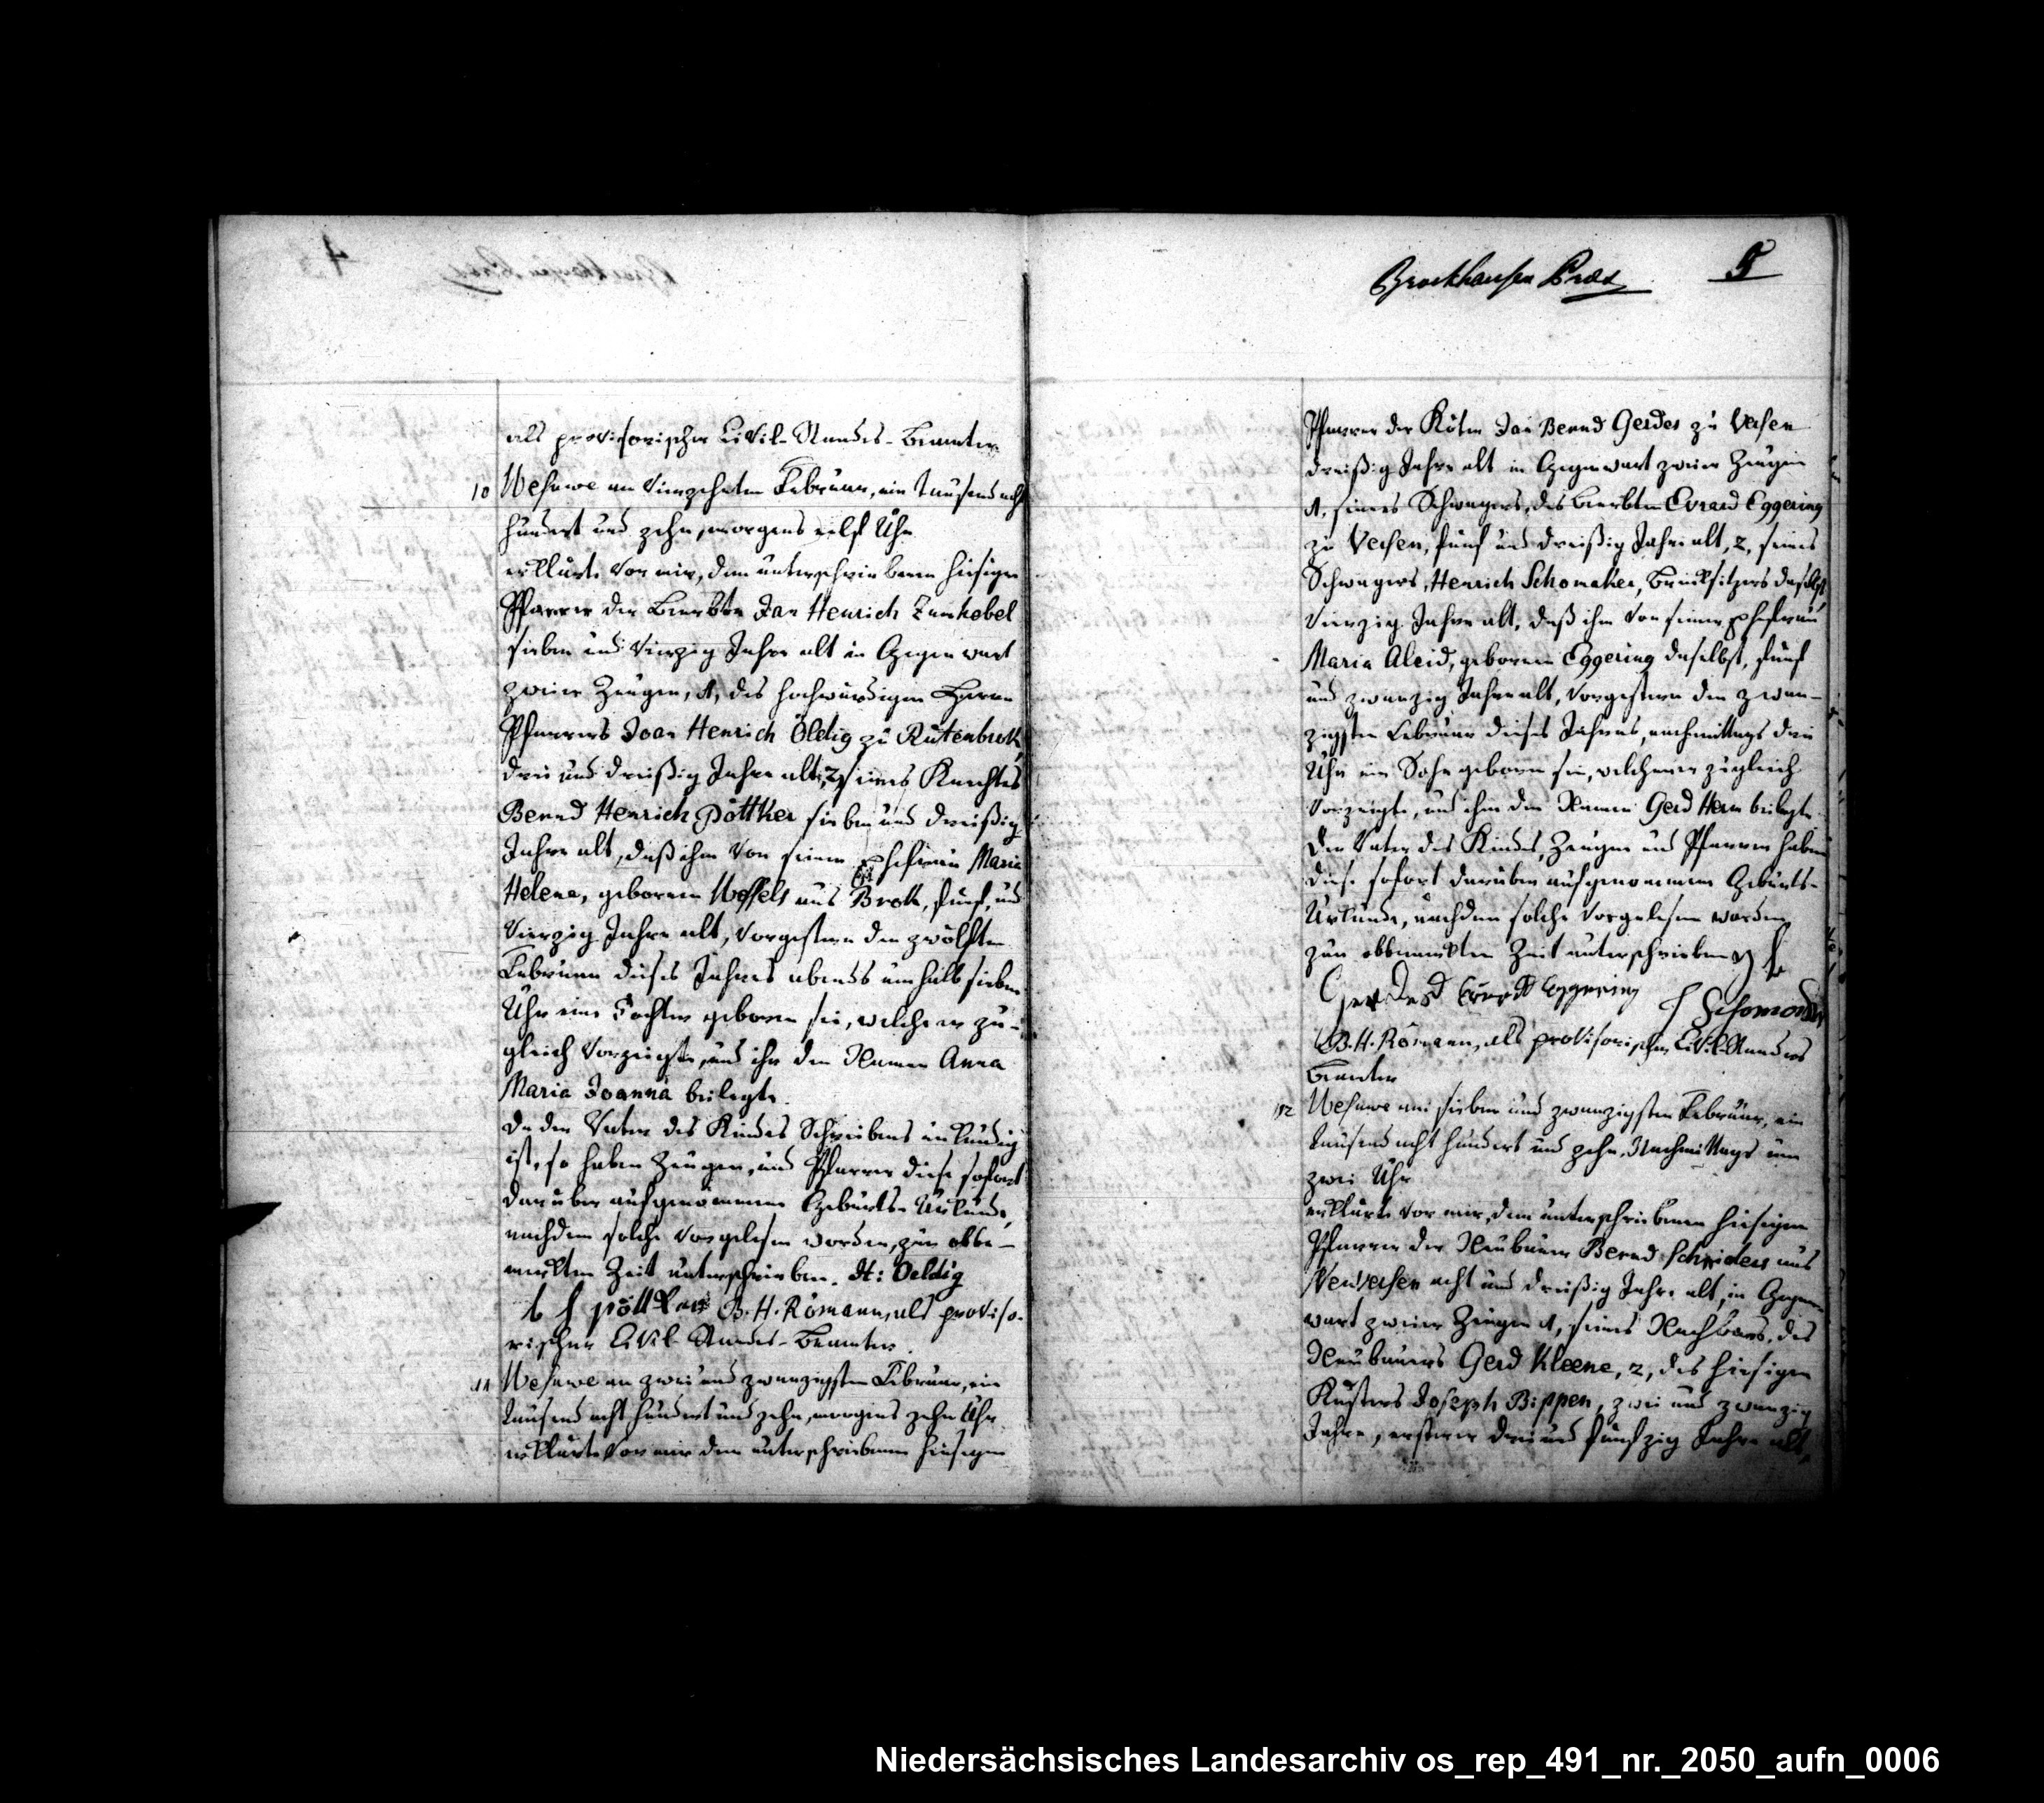 als provisorischer Civil-Standes-Beamter
10 Wesuwe am vierzehnten Februar, ein tausend acht
hundert und zehn, morgens eilf Uhr
erklärte vor mir, dem unterschriebenen hiesigen
Pfarrer der Beerbte Jan Henrich Zumhobel
sieben und vierzig Jahre alt in Gegenwart
zweier Zeugen, 1, des hochwürdigen Herrn
Pfarrers Joan Henrich Öldig zu Rütenbrok
drei und dreißig Jahre alt, 2, seines Knechtes
Bernd Henrich Pöttker sieben und dreißig
Jahre alt, daß ihm von seiner Ehefrau Maria
Helena, geborenen Wessels aus Brok, fünf und
vierzig Jahre alt, vorgestern den zwölften
Februar dieses Jahres abends um halb sieben
Uhr eine Tochter geboren sei, welche er zu-
gleich vorzeigte, und ihr den Namen Anna
Maria Joanna beilegte.
Da der Vater des Kindes Schreibens unkundig
ist, so haben Zeugen, und Pfarrer diese sofort
darüber aufgenommene Geburts-Urkunde,
nachdem solche vorgelesen worden, zur obbe-
merkten Zeit unterschrieben. H: Oeldig
b h pöttker B. H. Römann, als proviso-
rischer Civil-Standes-Beamter.
11 Wesuwe am zwei und zwanzigsten Februar, ein
tausend acht hundert und zehn, morgens zehn Uhr
erklärte vor mir dem unterschriebenen hiesigen
Brockhausen Præs 5
Pfarrer der Köter Jan Bernd Gerdes zu Versen
dreißig Jahre alt in Gegenwart zweier Zeugen
1, seines Schwagers, des Beerbten Evrard Eggering
zu Versen, fünf und dreißig Jahre alt, 2, seines
Schwagers, Henrich Schomaker, Brinksitzers daselbst
vierzig Jahre alt, daß ihm von seiner Ehefrau
Maria Aleid, geborenen Eggering daselbst, fünf
und zwanzig Jahre alt, vorgestern den zwan-
zigsten Februar dieses Jahres, nachmittags drei
Uhr ein Sohn geboren sei, welchen er zugleich
vorzeigte, und ihm den Namen Gerd Herm beilegte.
Der Vater des Kindes, Zeugen und Pfarrer haben
diese sofort darüber aufgenommene Geburts-
Urkunde, nachdem solche vorgelesen worden
zur obbemerkten Zeit unterschrieben
Gerdes Eggering H Schomaker
B. H. Römann, als provisorischer Civil-Standes
Beamter
12 Wesuwe am sieben und zwanzigsten Februar, ein
tausend acht hundert und zehn, Nachmittags um
zwei Uhr
erklärte vor mir, dem unterschriebenen hiesigen
Pfarrer der Neubauer Bernd Schniders aus
Neuversen acht und dreißig Jahre alt, in Gegen-
wart zweier Zeugen 1, seines Nachbars, des
Neubauers Gerd Kleene, 2, des hiesigen
Küsters Joseph Bippen, zwei und zwanzig
Jahre, ersterer drei und fünfzig Jahre alt,
Niedersächsisches Landesarchiv os_rep_491_nr._2050_aufn_0006